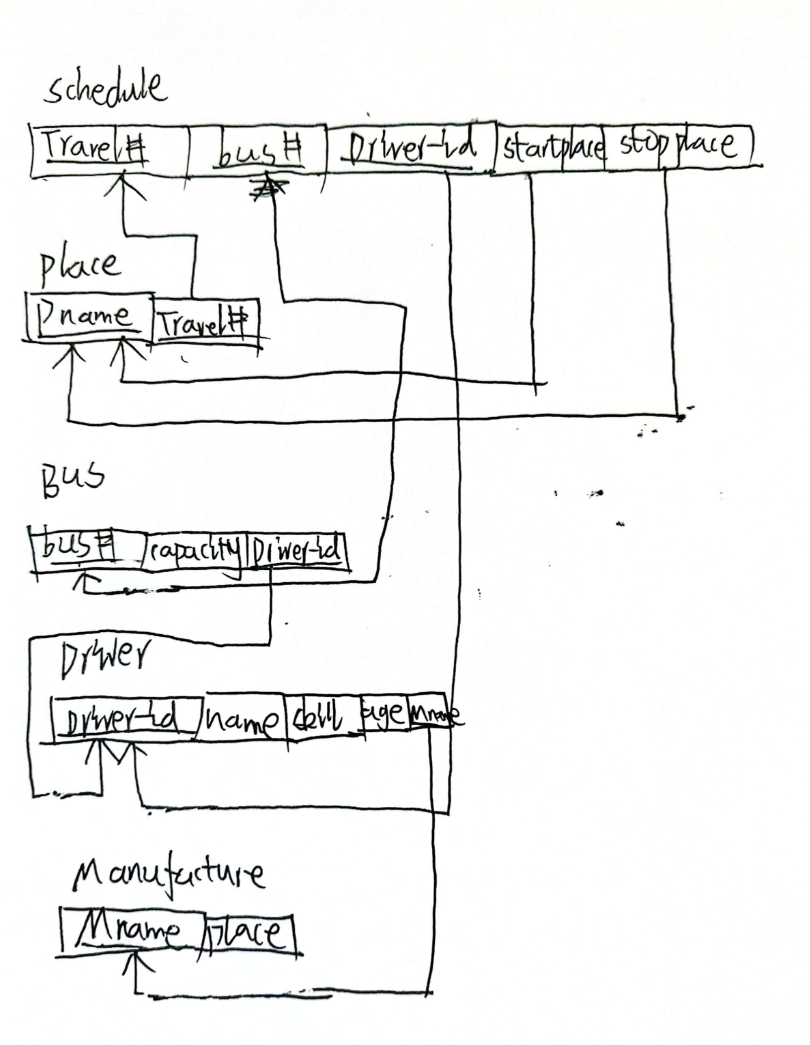 schedule
Travel# bus# Driver-id startplace stop place
place
Pname Travel#
Bus
bus# capacity Driver-id
Driver
Driver-id name age Mname
Manufacture
Mname place